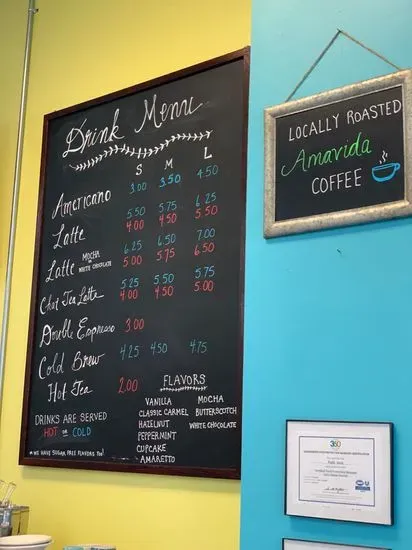 Drink Menu
S M L
Americano 3.00 3.50 4.50
Latte 5.50 5.75 6.25
4.00 4.50 5.50
Latte MOCHA OR WHITE CHOCOLATE 6.25 6.50 7.00
5.00 5.75 6.50
Chai Tea Latte 5.25 5.50 5.75
4.00 4.50 5.00
Double Espresso 3.00
Cold Brew 4.25 4.50 4.75
Hot Tea 2.00
FLAVORS
VANILLA MOCHA
CLASSIC CARMEL BUTTERSCOTCH
HAZELNUT WHITE CHOCOLATE
PEPPERMINT
CUPCAKE
AMARETTO
DRINKS ARE SERVED
HOT or COLD
* WE HAVE SUGAR FREE FLAVORS TOO!
LOCALLY ROASTED
Amavida
COFFEE
360